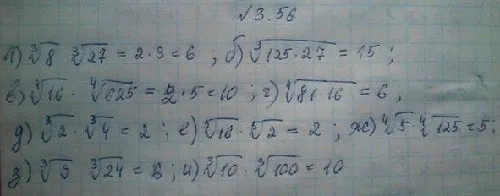 №3.56
а) ∛8 ∛27 = 2·3 = 6 ; б) ∛125·27 = 15 ;
в) ∜16 · ∜625 = 2·5 = 10 ; г) ∜81 16 = 6 ,
д) ∛2 · ∛4 = 2 ; е) ⁵√16 · ⁵√2 = 2 ; ж) ∜5 · ∜125 = 5 ;
з) ∛9 ∛24 = 6 ; и) ∛10 · ∛100 = 10